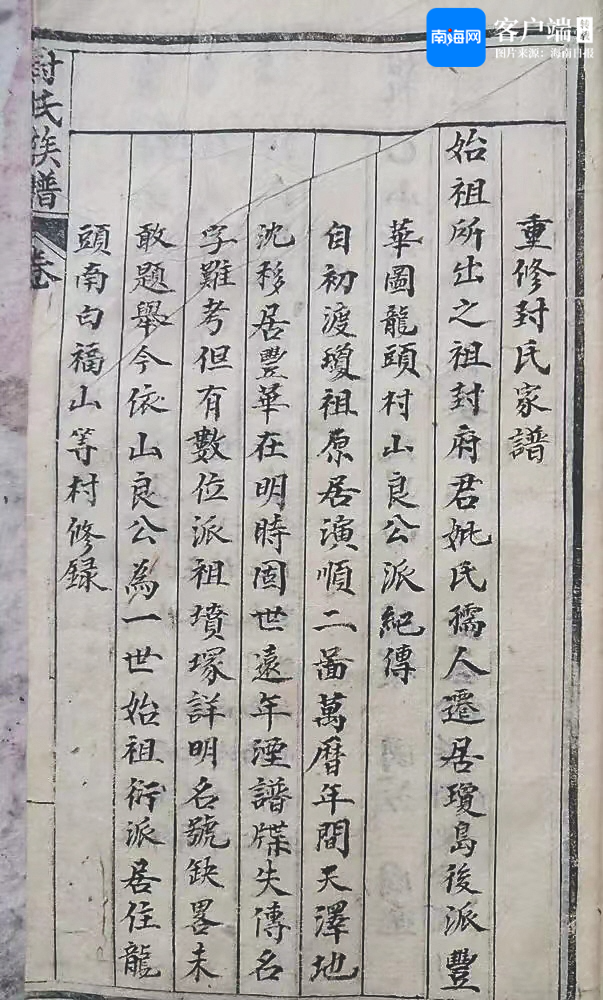 南海网
客户端
图片来源：海南日报
重修封氏家譜
始祖所出之祖封府君妣氏孺人遷居瓊島後派豐
華圖龍頭村山良公派紀傳
自初渡瓊祖原居演順二啚萬曆年間天澤地
沈移居豐華在明時固世遠年湮譜牒失傳名
字難考但有數位派祖墳塚詳明名號缺畧未
敢題舉今依山良公為一世始祖衍派居住龍
頭南白福山等村修録
封氏族譜
卷